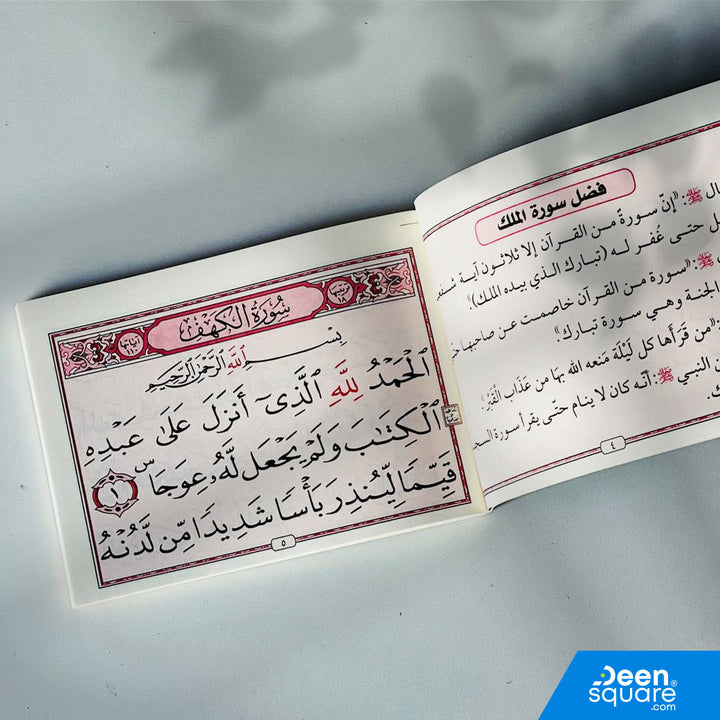 فضل سورة الملك
ال ﷺ: "إنّ سورةً من القرآن إلا ثلاثون آية
حتى غُفر له (تبارك الذي بيده الملك)".
ﷺ: "سورة من القرآن خاصمت عن صاحبها
الجنة وهي سورة تبارك"
"من قَرَأها كل لَيْلَة مَنعه الله بهَا من عَذَاب الْقَبْر"
النبي ﷺ: أنّه كان لا ينام حتّى يقرأ سورة
٤
سُورَةُ الكَهْفِ
بِسْمِ اللَّهِ الرَّحْمَٰنِ الرَّحِيمِ
ٱلْحَمْدُ لِلَّهِ ٱلَّذِىٓ أَنزَلَ عَلَىٰ عَبْدِهِ
ٱلْكِتَٰبَ وَلَمْ يَجْعَل لَّهُۥ عِوَجَاۜ ١
قَيِّمًا لِّيُنذِرَ بَأْسًا شَدِيدًا مِّن لَّدُنْهُ
٥
Deen
square®
.com